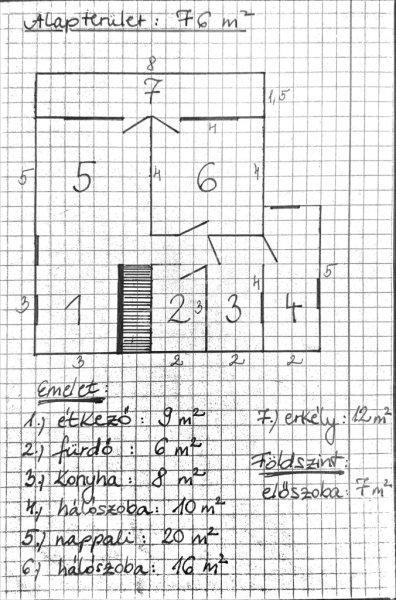 Alapterület: 76 m²
8
7
1,5
4
5
5
4
6
4
5
3
1
2
3
3
4
4
3
2
2
2
Emelet:
1.) étkező: 9 m²
2.) fürdő: 6 m²
3.) konyha: 8 m²
4.) hálószoba: 10 m²
5.) nappali: 20 m²
6.) hálószoba: 16 m²
7.) erkély: 12 m²
Földszint:
előszoba: 7 m²